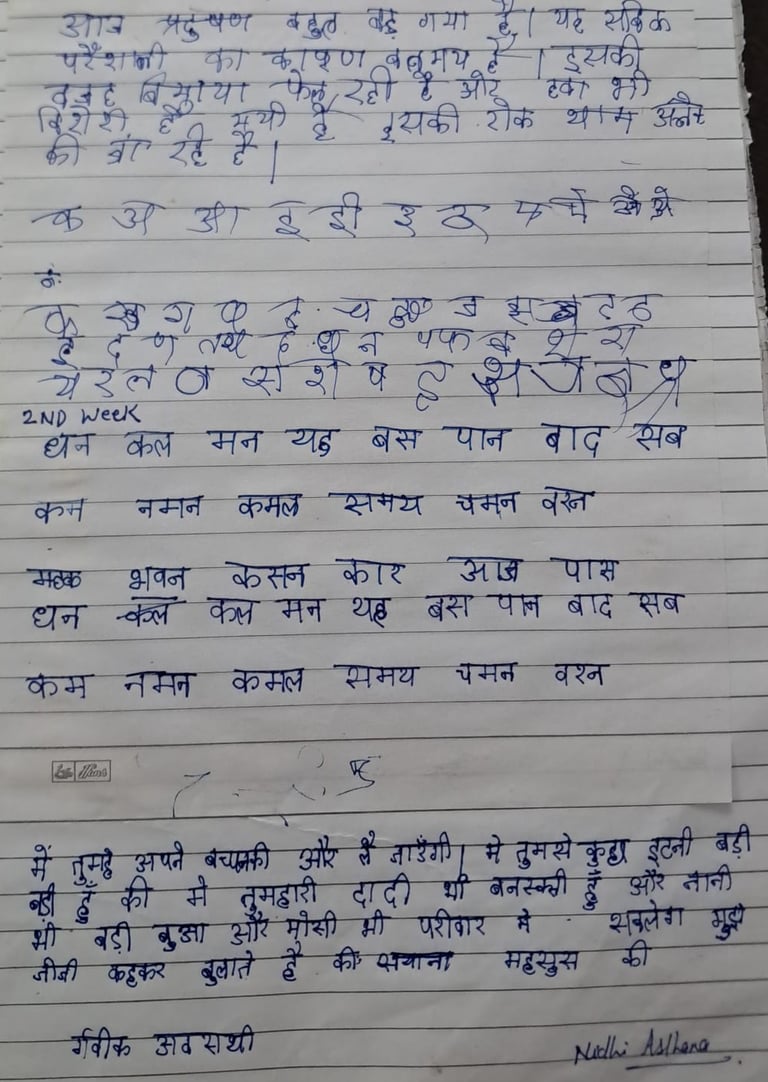 आज प्रदुषण बहुत बढ़ गया है। यह सबकि
परेशानी का काऱण बनुमय है। इसकी
वजह बिमाया फेल रही है और हवा भी
है इसकी रोक थाम अनेक
की जा रहे है।
क अ आ इ ई उ ऊ ए ऐ
क ख ग घ ड़ च छ ज झ ट ठ
ड ढ ण त थ द ध न प फ ब
य र ल व स श ष ह क्ष ज्ञ श्र
2ND Week
धन कल मन यह बस पान बाद सब
कम नमन कमल समय चमन वरन
महक भवन कसन कार आज पास
धन कल कल मन यह बस पान बाद सब
कम नमन कमल समय चमन वरन
में तुम्हे अपने बचपनकी और ले जाउँगी। मे तुमसे कुहा इतनी बड़ी
बड़ी हुँ की मे तुमहारी दादी भी बनसक्ती हुँ और नानी
भी बड़ी बुआ और मोसी भी परीवार मे सबलोग मुझे
जीजी कहकर बुलाते है की सयाना महसुस की
र्गवीक अवस्थी
Nidhi Asthana